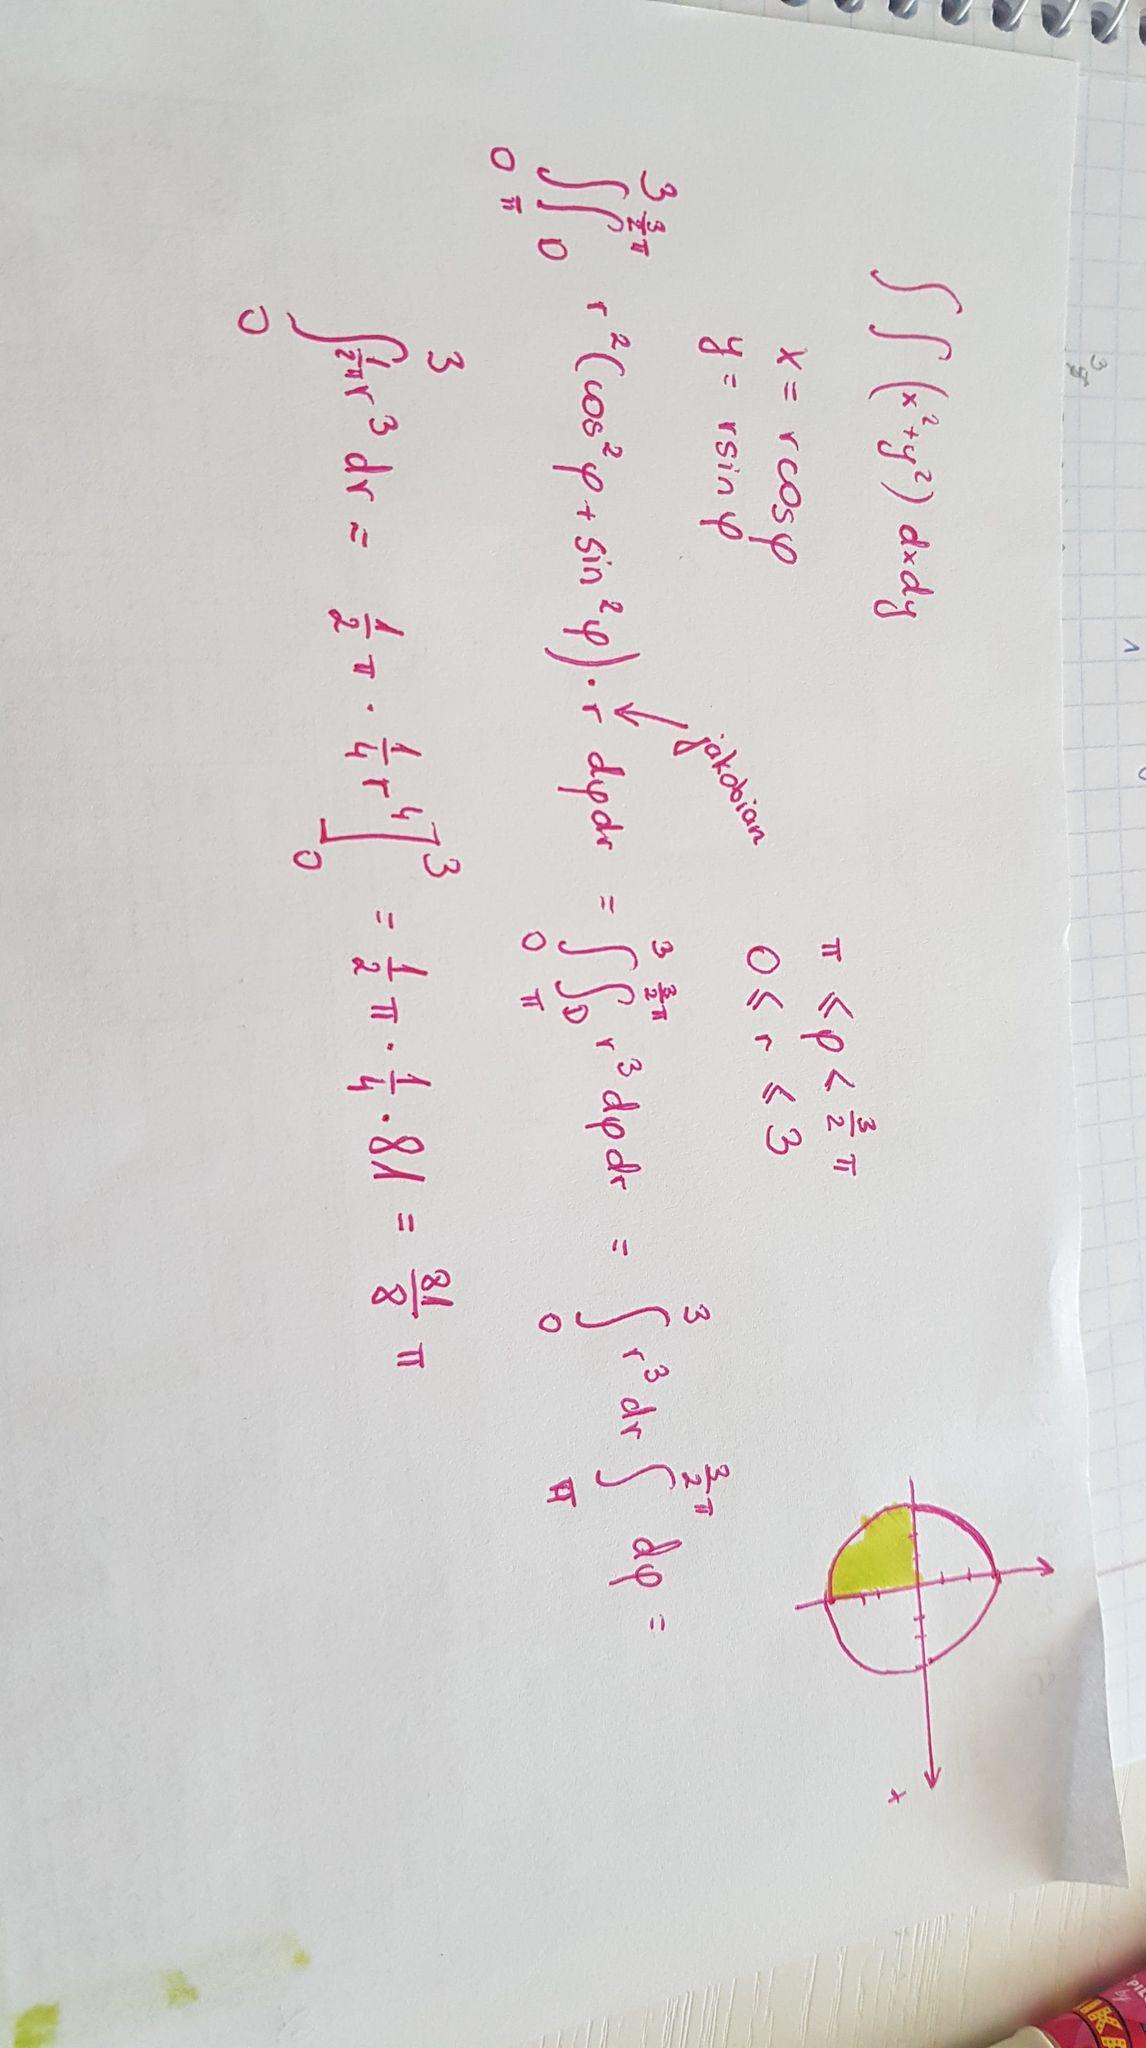 ∫∫ (x²+y²) dxdy
x = r cosφ
y = r sinφ
π ≤ φ < 3/2 π
0 ≤ r ≤ 3
x
jakobian
∫₀³ ∫_π^{3/2 π} D r²(cos²φ + sin²φ)·r dφdr = ∫₀³ ∫_π^{3/2 π} D r³ dφdr = ∫₀³ r³ dr ∫_π^{3/2 π} dφ =
∫₀³ 1/2 π r³ dr = 1/2 π · 1/4 r⁴]₀³ = 1/2 π · 1/4 · 81 = 81/8 π